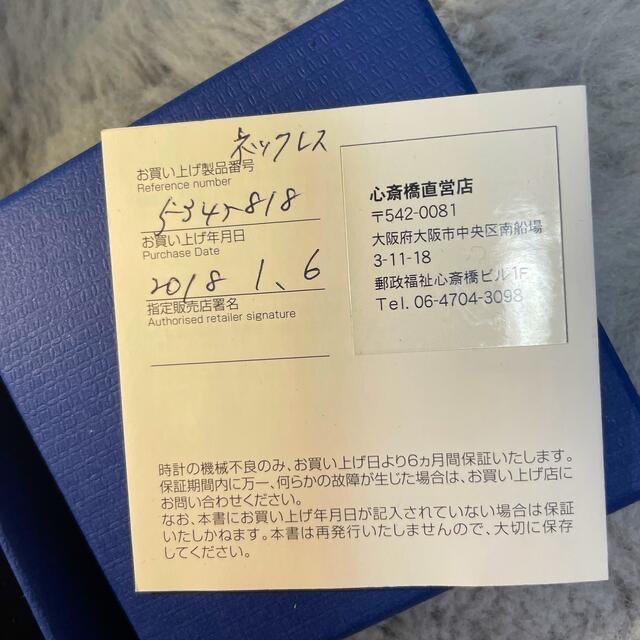 ネックレス
お買い上げ製品番号
Reference number
5345818
お買い上げ年月日
Purchase Date
2018 1、6
指定販売店署名
Authorised retailer signature
心斎橋直営店
〒542-0081
大阪府大阪市中央区南船場
3-11-18
郵政福祉心斎橋ビル1F
Tel. 06-4704-3098
時計の機械不良のみ、お買い上げ日より6ヵ月間保証いたします。
保証期間内に万一、何らかの故障が生じた場合は、お買い上げ店に
お問い合わせください。
なお、本書にお買い上げ年月日が記入されていない場合は保証
いたしかねます。本書は再発行いたしませんので、大切に保存
してください。